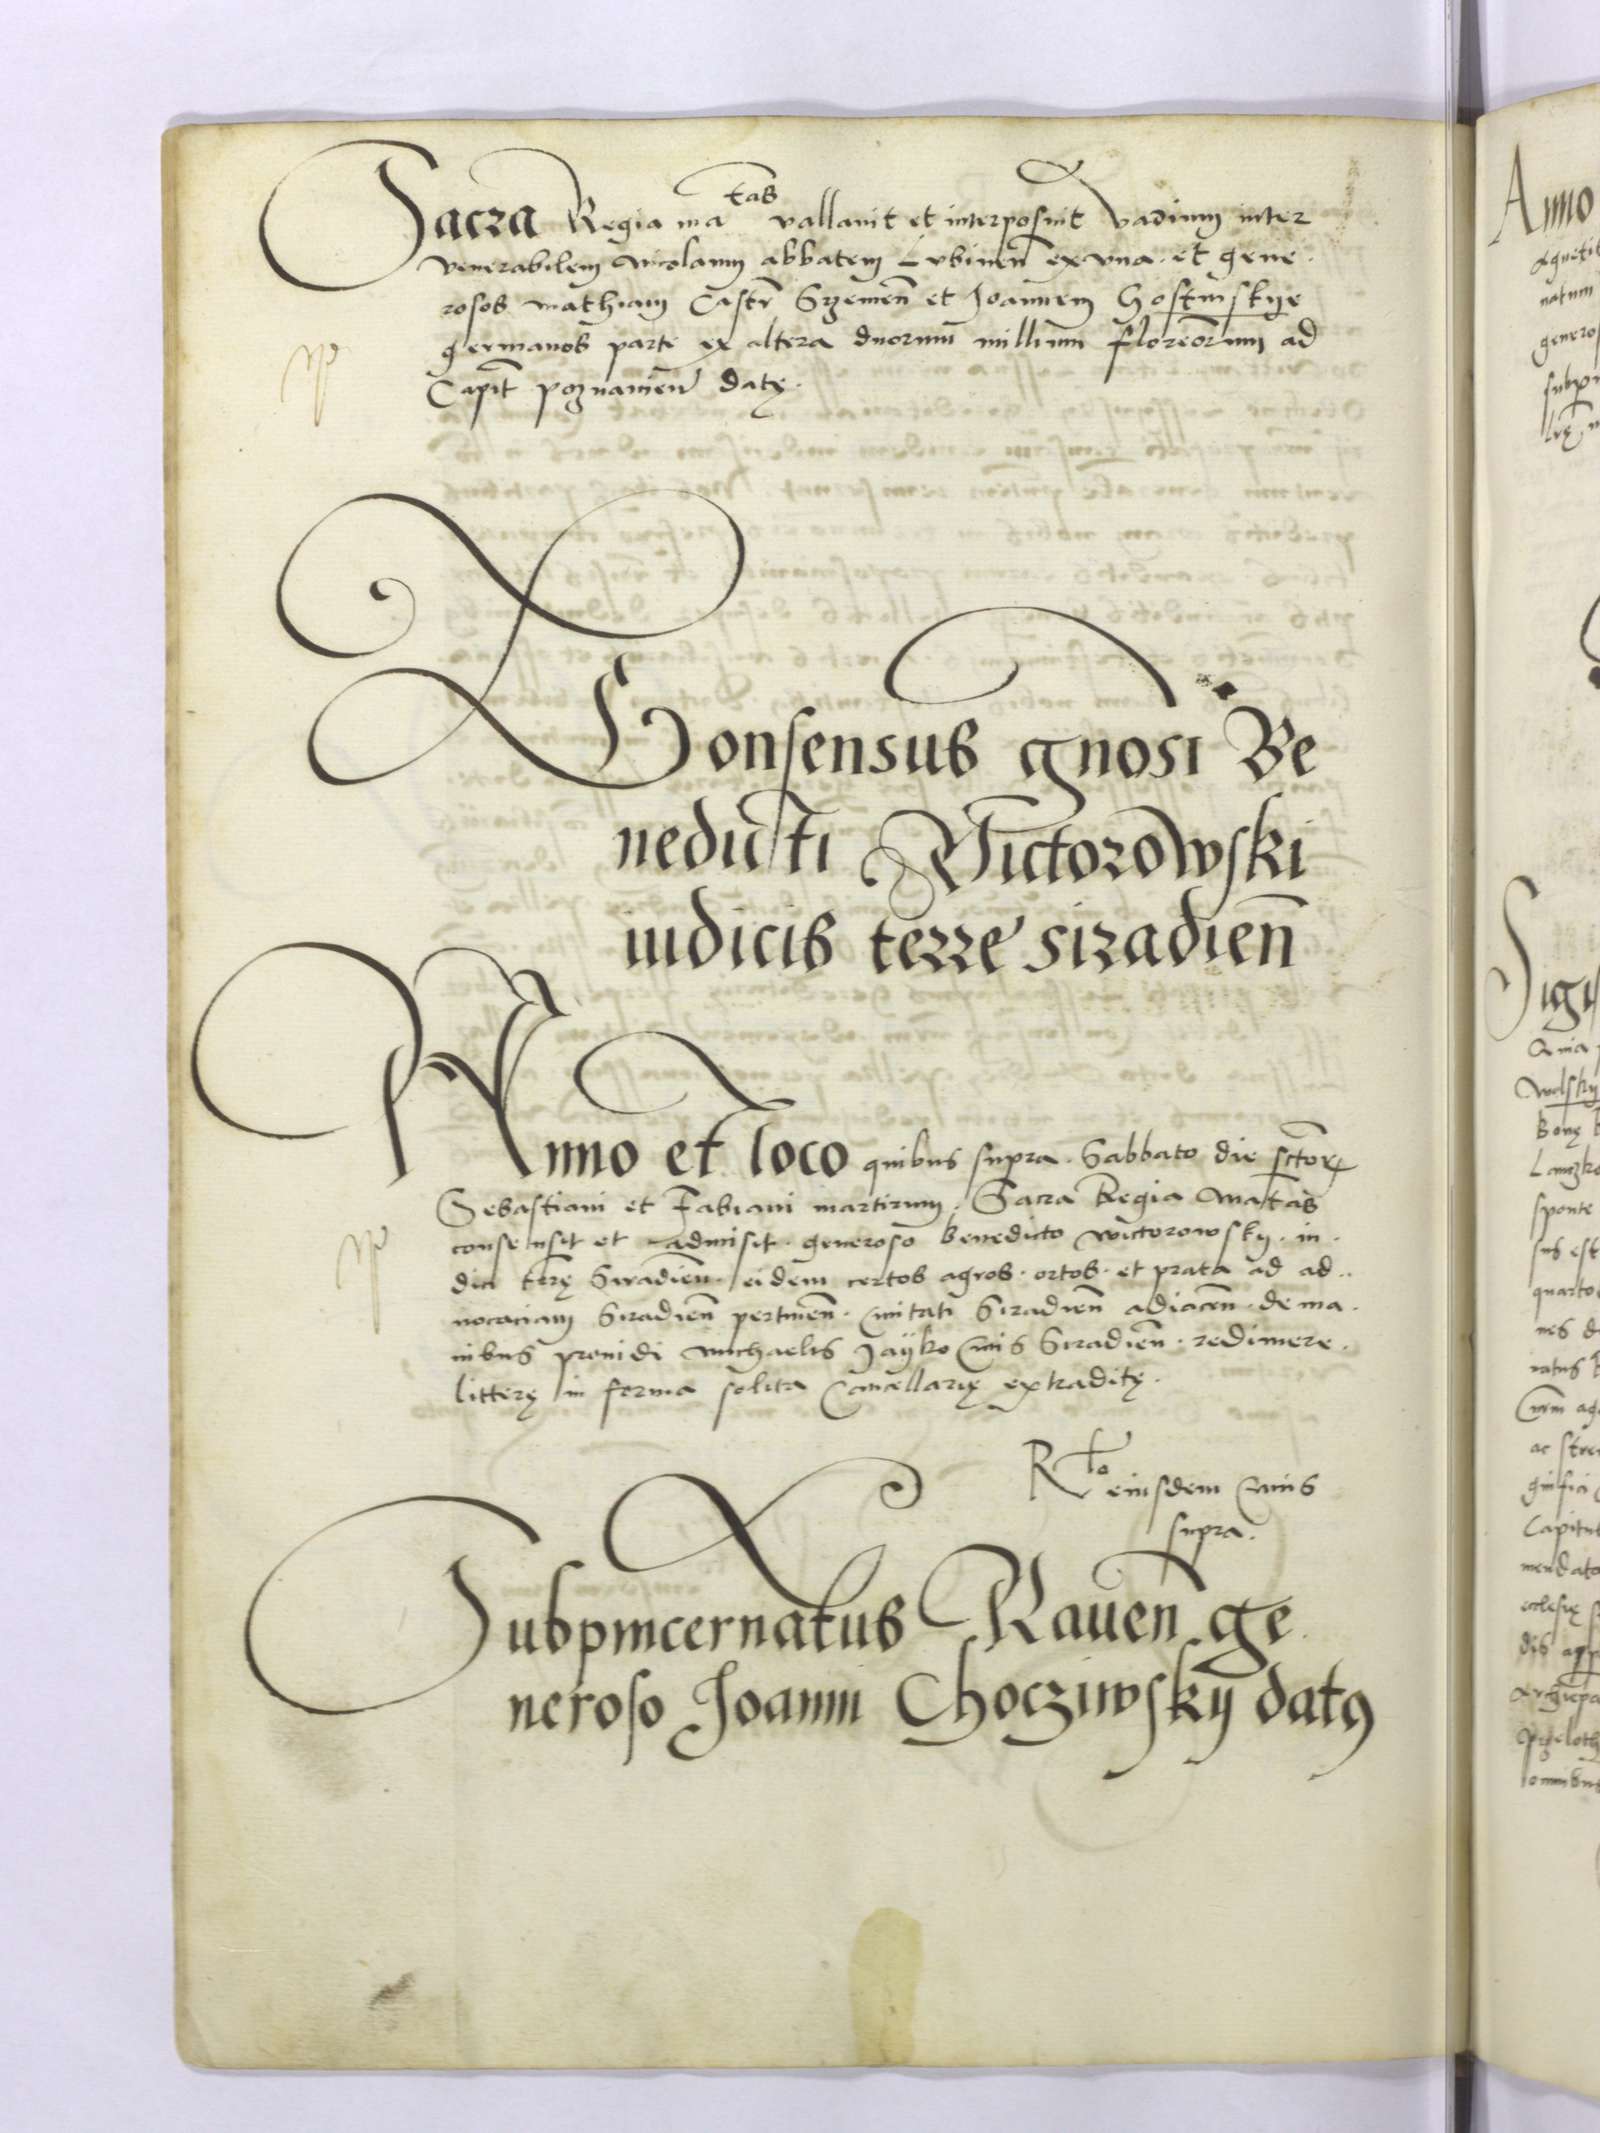 Sacra Regia ma tas vallavit et interposuit vadium inter
venerabilem Nicolaum abbatem Lubinen ex una . et gene .
rosos Mathiam Castr Szremen et Joannem Gostinskye
germanos parte ex altera duorum millium floreorum ad
Capit poznanien datę .
Consensus gnosi Be
nedicti Victorowski
iudicis terre siradien
Anno et loco quibus supra . Sabbato die sctor
Sebastiani et Fabiani martirum . Sacra Regia Matas
consensit et admisit . generoso Benedicto Victorowsky . iu .
dici terę Siradien . eidem certos agros . ortos . et prata ad ad .
vocaciam Siradien pertinen . Civitati Siradien adiacen . de ma .
nibus providi Michaelis Jayko Civis Siradien . redimere .
litterę in forma solita Cancellarię extraditę .
Rlo eiusdem cuius
supra .
Subpincernatus Raven ge
neroso Joanni Chocziwskÿ dat9
Anno
natum
generos
Sigis
sponte
sus est
quarto
ac stre
Capitul
mendato
ecclesię
omnibus